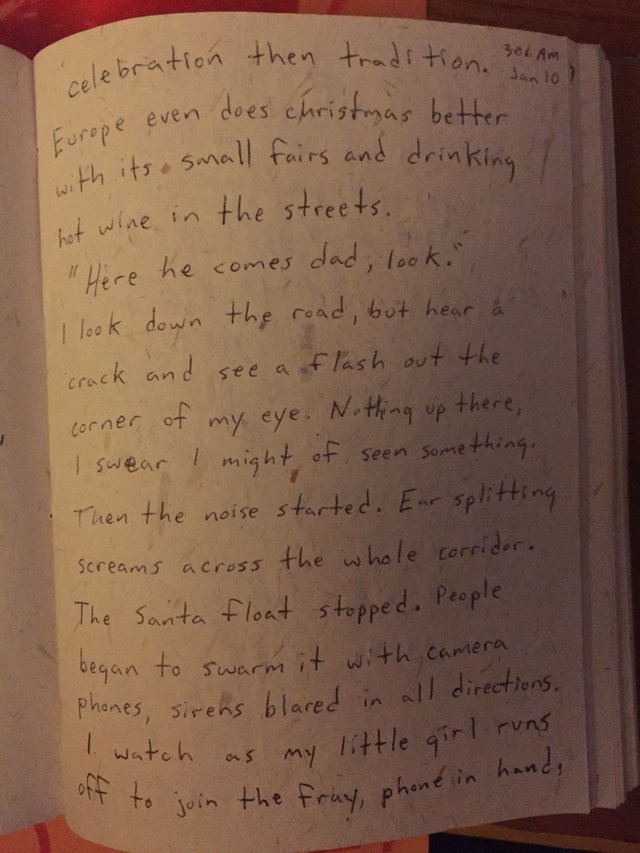 celebration then tradition. 3:06 Am
Jan 10
Europe even does christmas better
with its small fairs and drinking
hot wine in the streets.
"Here he comes dad, look."
I look down the road, but hear a
crack and see a flash out the
corner of my eye. Nothing up there,
I swear I might of seen something.
Then the noise started. Ear splitting
screams across the whole corridor.
The Santa float stopped. People
began to swarm it with camera
phones, sirens blared in all directions.
I watch as my little girl runs
off to join the fray, phone in hand,